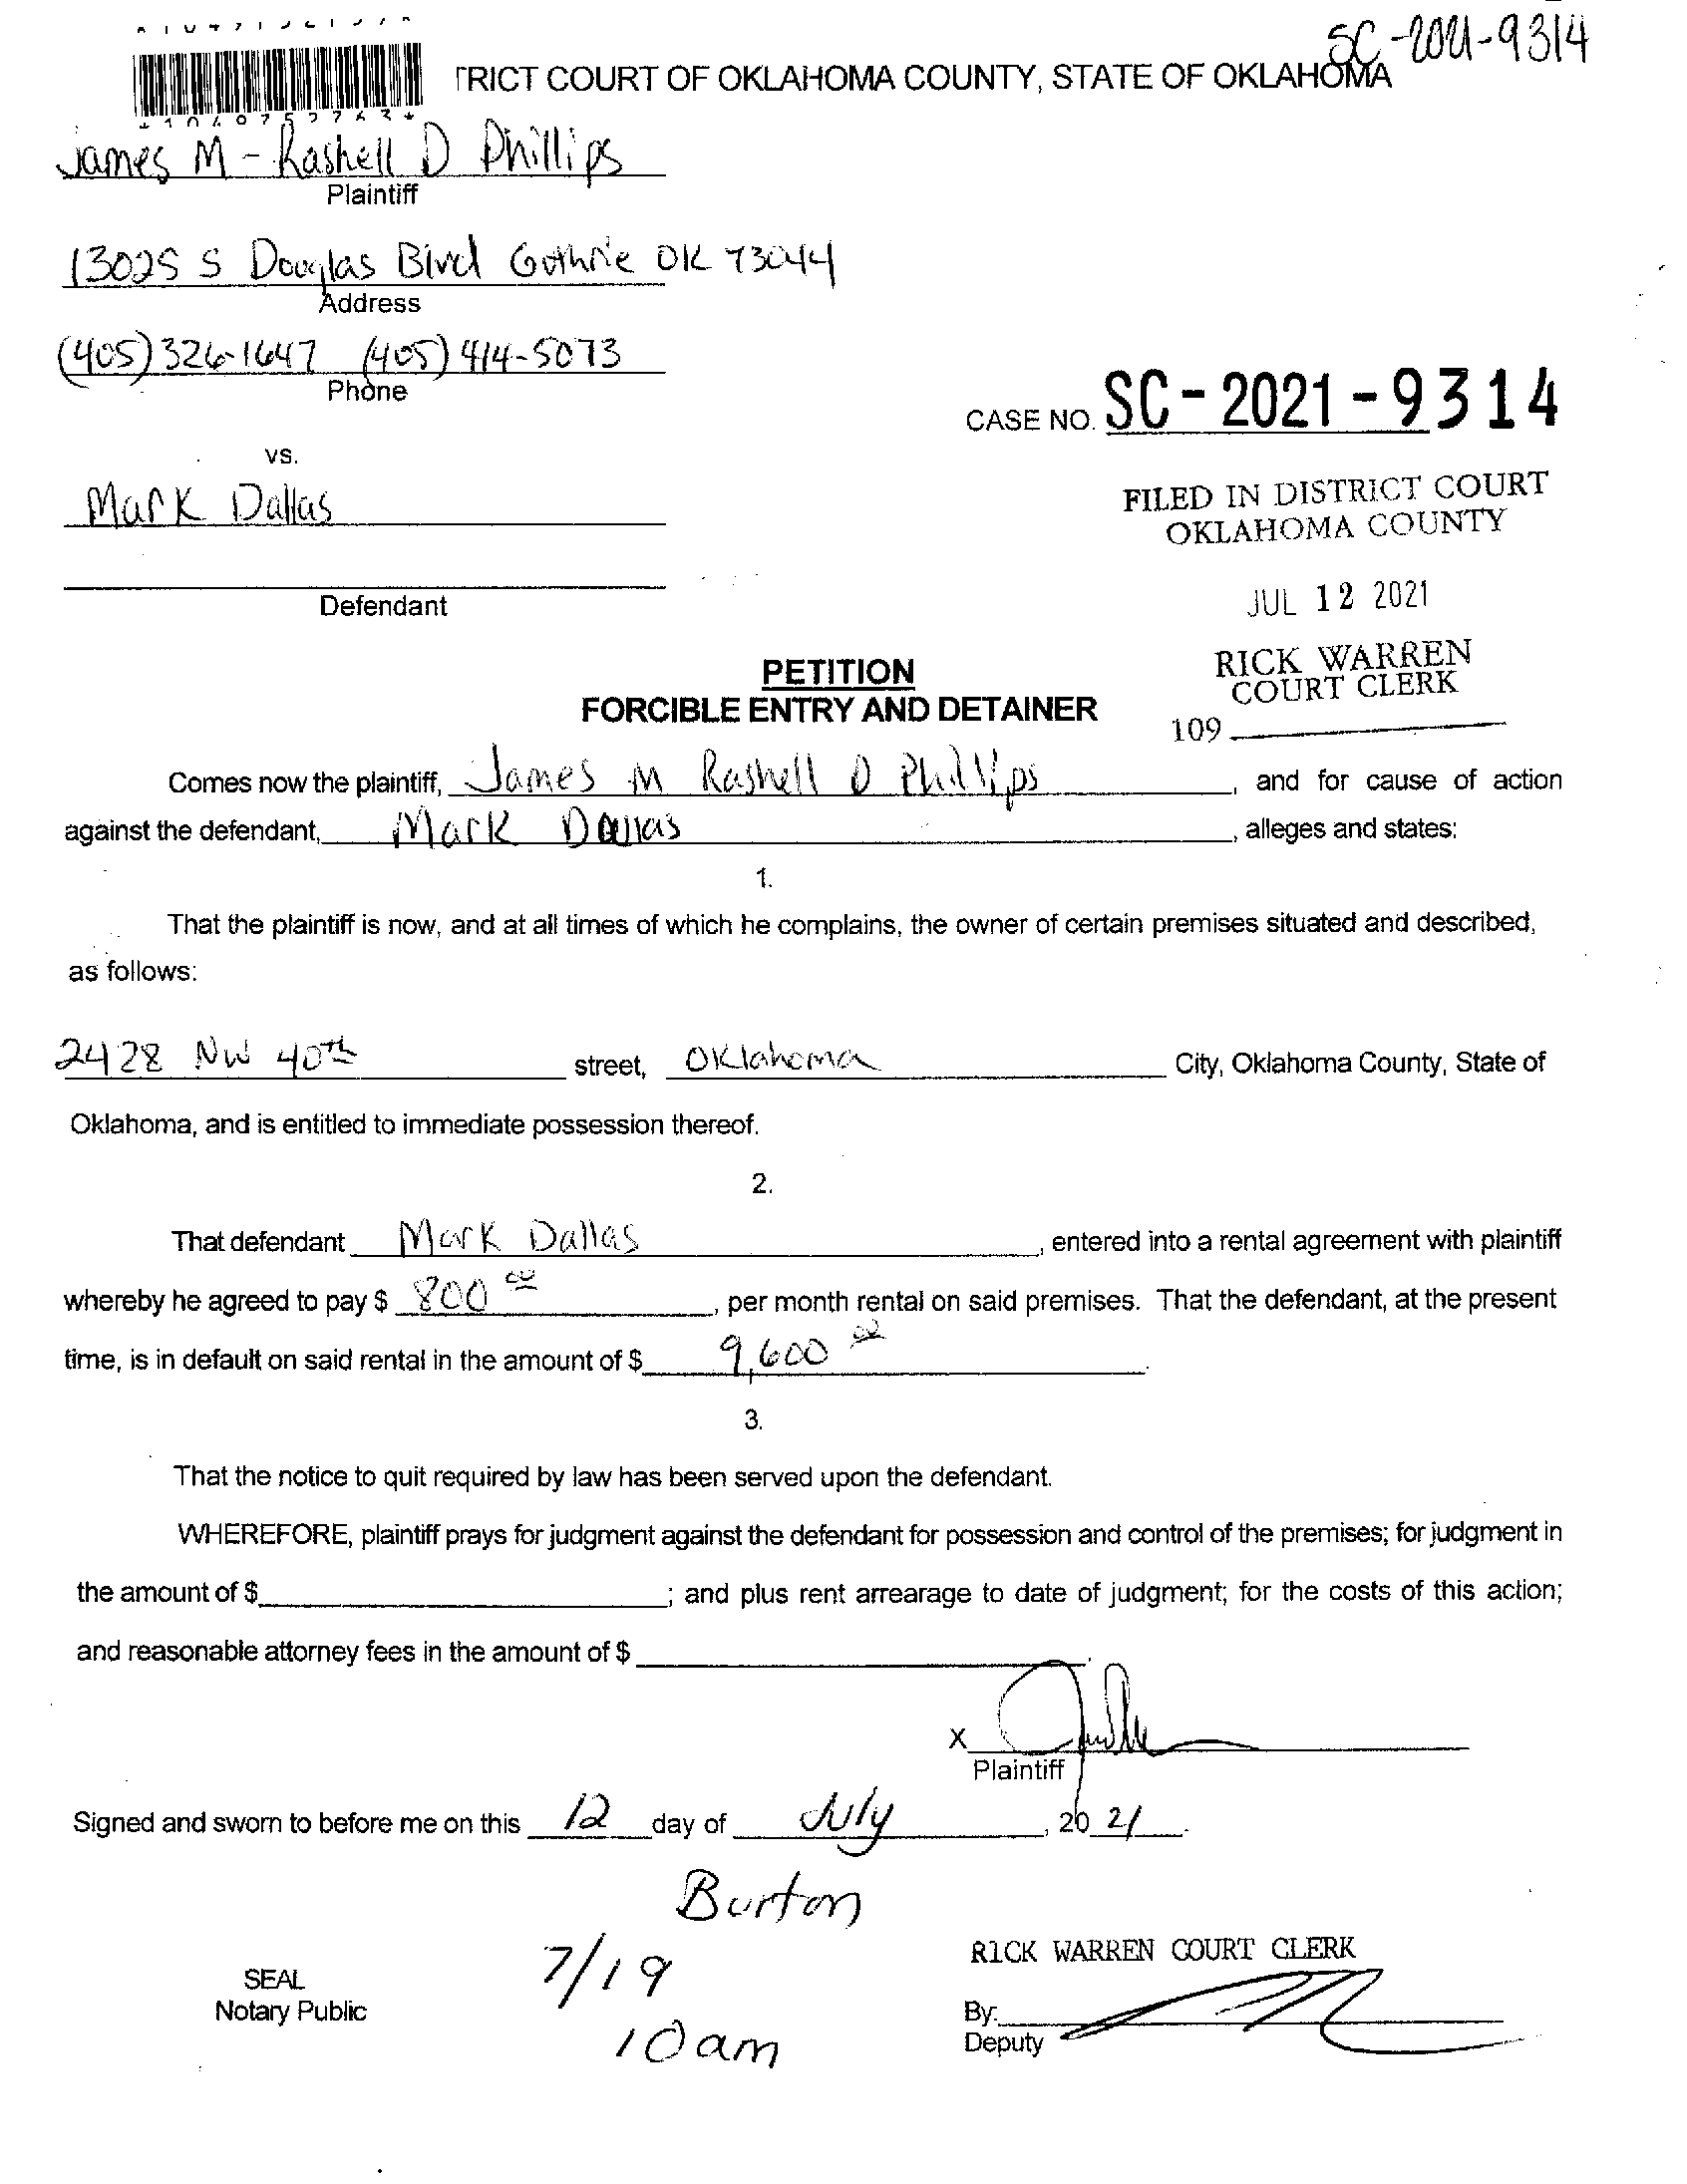 SC-2021-9314
TRICT COURT OF OKLAHOMA COUNTY, STATE OF OKLAHOMA
James M - Rashell D Phillips
Plaintiff
13025 S Douglas Blvd Guthrie OK 73044
Address
(405) 326-1647 (405) 414-5073
Phone
CASE NO. SC-2021-9314
vs.
Mark Dallas
FILED IN DISTRICT COURT
OKLAHOMA COUNTY
Defendant
JUL 12 2021
RICK WARREN
COURT CLERK
109
PETITION
FORCIBLE ENTRY AND DETAINER
Comes now the plaintiff, James M Rashell D Phillips, and for cause of action
against the defendant, Mark Dallas, alleges and states:
1.
That the plaintiff is now, and at all times of which he complains, the owner of certain premises situated and described,
as follows:
2428 NW 40th street, Oklahoma City, Oklahoma County, State of
Oklahoma, and is entitled to immediate possession thereof.
2.
That defendant Mark Dallas, entered into a rental agreement with plaintiff
whereby he agreed to pay $ 800 00, per month rental on said premises. That the defendant, at the present
time, is in default on said rental in the amount of $ 9,600 00.
3.
That the notice to quit required by law has been served upon the defendant.
WHEREFORE, plaintiff prays for judgment against the defendant for possession and control of the premises; for judgment in
the amount of $ ; and plus rent arrearage to date of judgment; for the costs of this action;
and reasonable attorney fees in the amount of $ .
X
Plaintiff
Signed and sworn to before me on this 12 day of July, 20 21.
Burton
7/19
10am
SEAL
Notary Public
RICK WARREN COURT CLERK
By:
Deputy